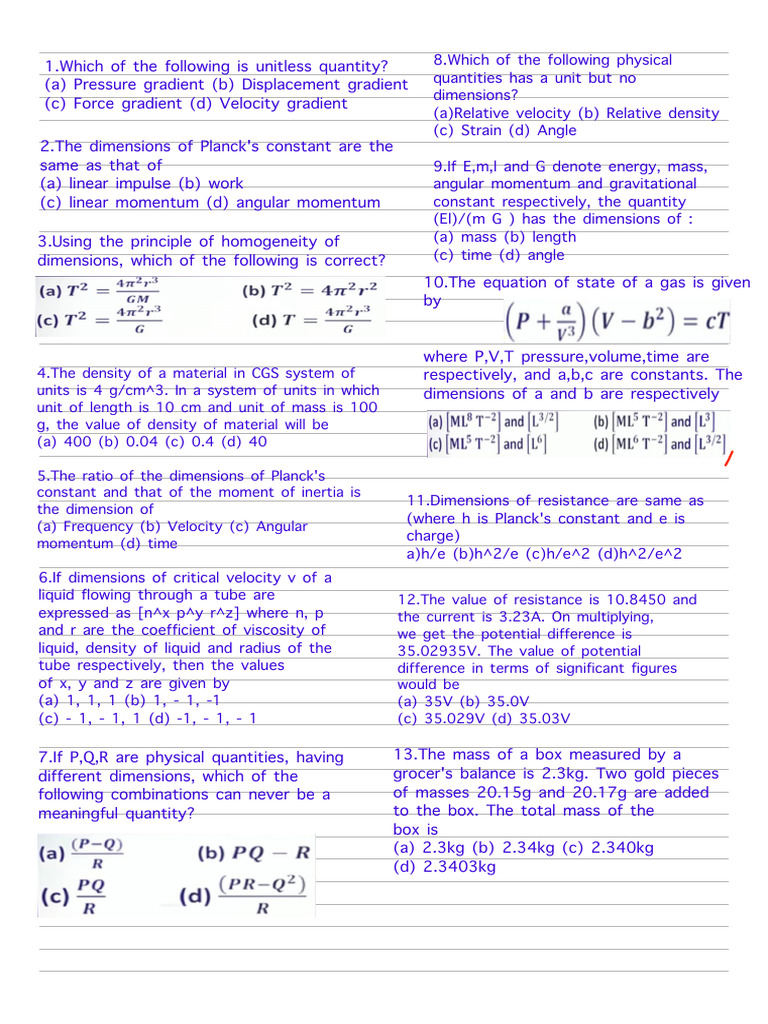 1.Which of the following is unitless quantity?
(a) Pressure gradient (b) Displacement gradient
(c) Force gradient (d) Velocity gradient
2.The dimensions of Planck's constant are the
same as that of
(a) linear impulse (b) work
(c) linear momentum (d) angular momentum
3.Using the principle of homogeneity of
dimensions, which of the following is correct?
(a) T² = 4π²r³/GM (b) T² = 4π²r²
(c) T² = 4π²r³/G (d) T = 4π²r³/G
4.The density of a material in CGS system of
units is 4 g/cm^3. In a system of units in which
unit of length is 10 cm and unit of mass is 100
g, the value of density of material will be
(a) 400 (b) 0.04 (c) 0.4 (d) 40
5.The ratio of the dimensions of Planck's
constant and that of the moment of inertia is
the dimension of
(a) Frequency (b) Velocity (c) Angular
momentum (d) time
6.If dimensions of critical velocity v of a
liquid flowing through a tube are
expressed as [n^x p^y r^z] where n, p
and r are the coefficient of viscosity of
liquid, density of liquid and radius of the
tube respectively, then the values
of x, y and z are given by
(a) 1, 1, 1 (b) 1, - 1, -1
(c) - 1, - 1, 1 (d) -1, - 1, - 1
7.If P,Q,R are physical quantities, having
different dimensions, which of the
following combinations can never be a
meaningful quantity?
(a) (P−Q)/R (b) PQ − R
(c) PQ/R (d) (PR−Q²)/R
8.Which of the following physical
quantities has a unit but no
dimensions?
(a)Relative velocity (b) Relative density
(c) Strain (d) Angle
9.If E,m,l and G denote energy, mass,
angular momentum and gravitational
constant respectively, the quantity
(El)/(m G ) has the dimensions of :
(a) mass (b) length
(c) time (d) angle
10.The equation of state of a gas is given
by
(P + a/V³)(V − b²) = cT
where P,V,T pressure,volume,time are
respectively, and a,b,c are constants. The
dimensions of a and b are respectively
(a) [ML⁸ T⁻²] and [L³ᐟ²] (b) [ML⁵ T⁻²] and [L³]
(c) [ML⁵ T⁻²] and [L⁶] (d) [ML⁶ T⁻²] and [L³ᐟ²]
11.Dimensions of resistance are same as
(where h is Planck's constant and e is
charge)
a)h/e (b)h^2/e (c)h/e^2 (d)h^2/e^2
12.The value of resistance is 10.8450 and
the current is 3.23A. On multiplying,
we get the potential difference is
35.02935V. The value of potential
difference in terms of significant figures
would be
(a) 35V (b) 35.0V
(c) 35.029V (d) 35.03V
13.The mass of a box measured by a
grocer's balance is 2.3kg. Two gold pieces
of masses 20.15g and 20.17g are added
to the box. The total mass of the
box is
(a) 2.3kg (b) 2.34kg (c) 2.340kg
(d) 2.3403kg